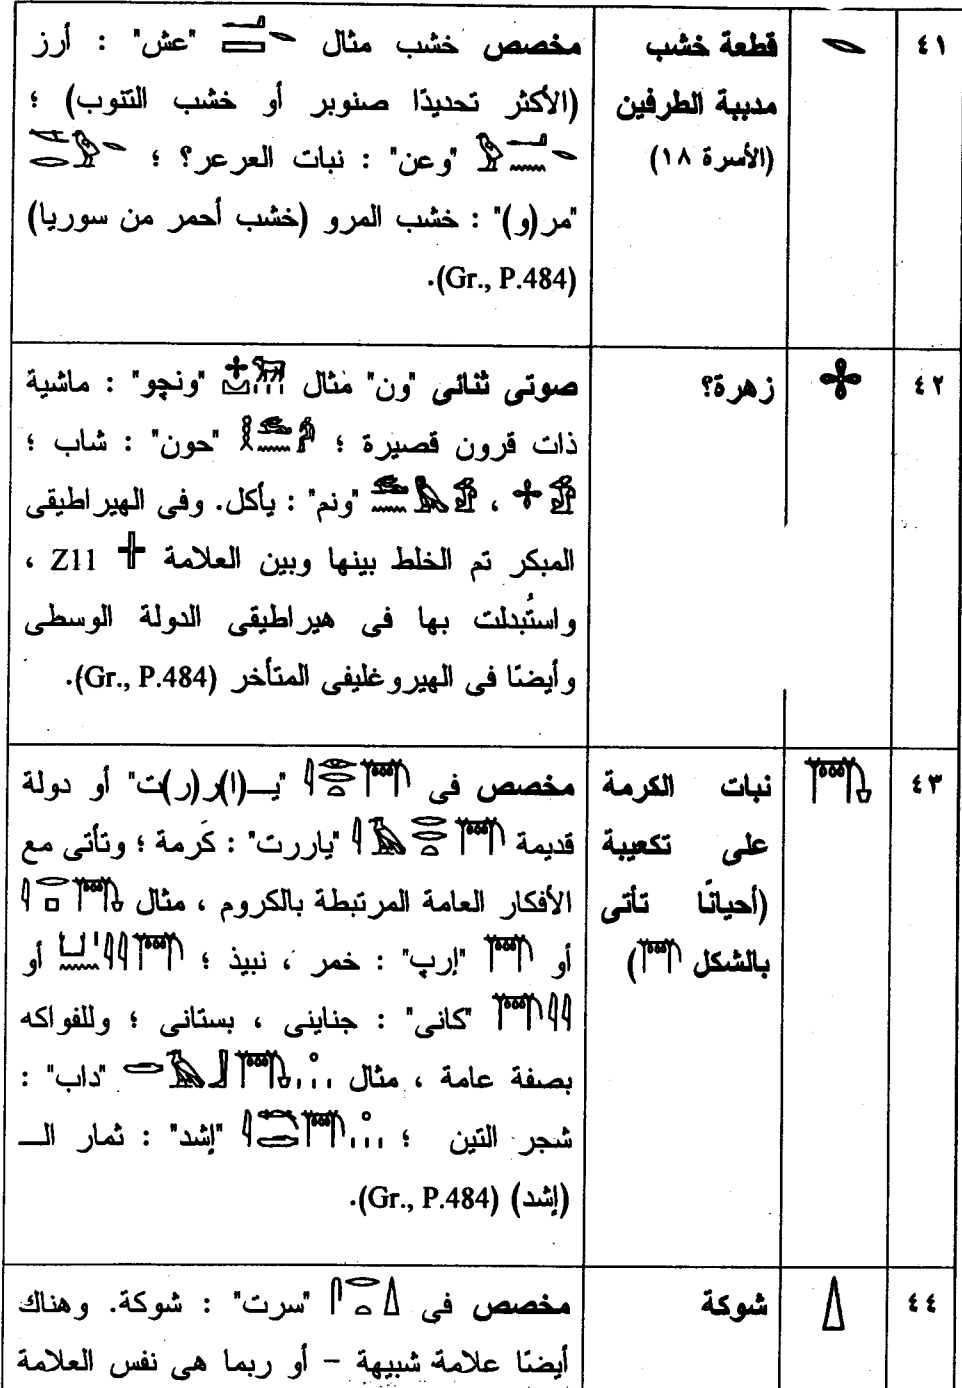 ٤١ قطعة خشب مخصص خشب مثال "عش" : أرز
مدببة الطرفين (الأكثر تحديدًا صنوبر أو خشب التنوب) ؛
(الأسرة ١٨) "وعن" : نبات العرعر؟ ؛
"مر(و)" : خشب المرو (خشب أحمر من سوريا)
(Gr., P.484).
٤٢ زهرة؟ صوتى ثنائى "ون" مثال "ونچو" : ماشية
ذات قرون قصيرة ؛ "حون" : شاب ؛
، "ونم" : يأكل. وفى الهيراطيقى
المبكر تم الخلط بينها وبين العلامة Z11 ،
واستُبدلت بها فى هيراطيقى الدولة الوسطى
وأيضنا فى الهيروغليفى المتأخر (Gr., P.484).
٤٣ نبات الكرمة مخصص فى "يـــ(ا)ر(ر)ت" أو دولة
على تكعيبة قديمة "ياررت" : كَرمة ؛ وتأتى مع
(أحيانًا تأتى الأفكار العامة المرتبطة بالكروم ، مثال
بالشكل ) أو "إرپ" : خمر ، نبيذ ؛ أو
"كانى" : جناينى ، بستانى ؛ وللفواكه
بصفة عامة ، مثال "داب" :
شجر التين ؛ "إشد" : ثمار الـــ
(إشد) (Gr., P.484).
٤٤ شوكة مخصص فى "سرت" : شوكة. وهناك
أيضنا علامة شبيهة – أو ربما هى نفس العلامة